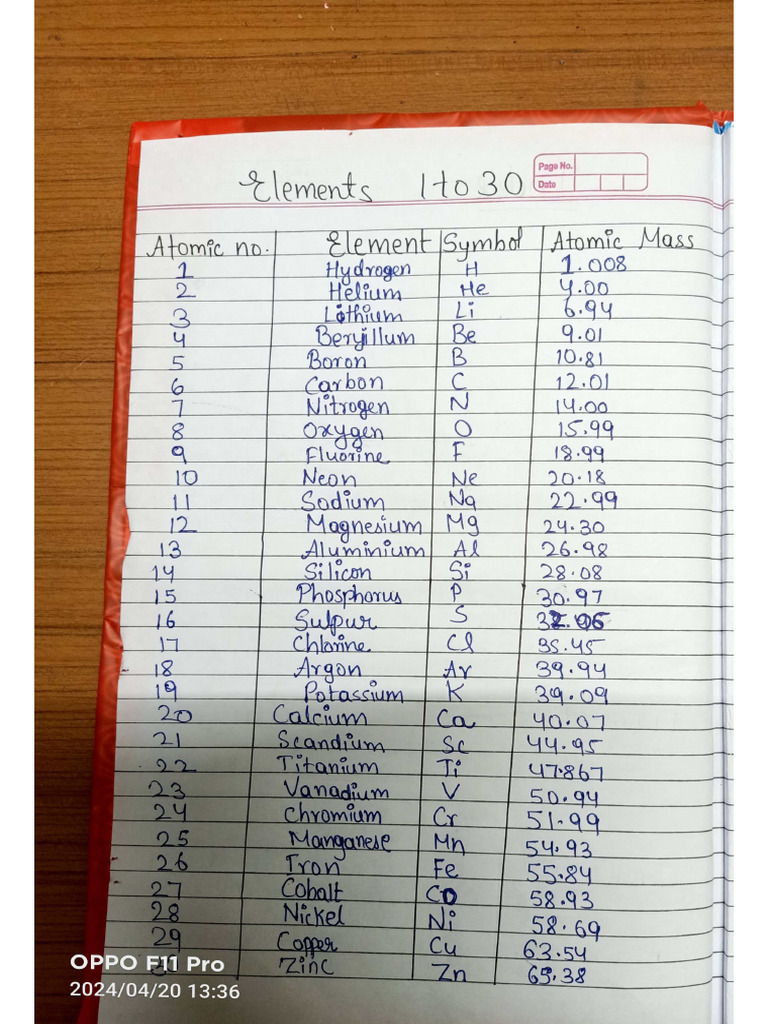 Elements 1 to 30
Page No.
Date
Atomic no. Element Symbol Atomic Mass
1 Hydrogen H 1.008
2 Helium He 4.00
3 Lithium Li 6.94
4 Beryillum Be 9.01
5 Boron B 10.81
6 Carbon C 12.01
7 Nitrogen N 14.00
8 Oxygen O 15.99
9 Fluorine F 18.99
10 Neon Ne 20.18
11 Sodium Na 22.99
12 Magnesium Mg 24.30
13 Aluminium Al 26.98
14 Silicon Si 28.08
15 Phosphorus P 30.97
16 Sulpur S 32.06
17 Chlorine Cl 35.45
18 Argon Ar 39.94
19 Potassium K 39.09
20 Calcium Ca 40.07
21 Scandium Sc 44.95
22 Titanium Ti 47.867
23 Vanadium V 50.94
24 Chromium Cr 51.99
25 Manganese Mn 54.93
26 Iron Fe 55.84
27 Cobalt Co 58.93
28 Nickel Ni 58.69
29 Copper Cu 63.54
30 Zinc Zn 65.38
OPPO F11 Pro
2024/04/20 13:36